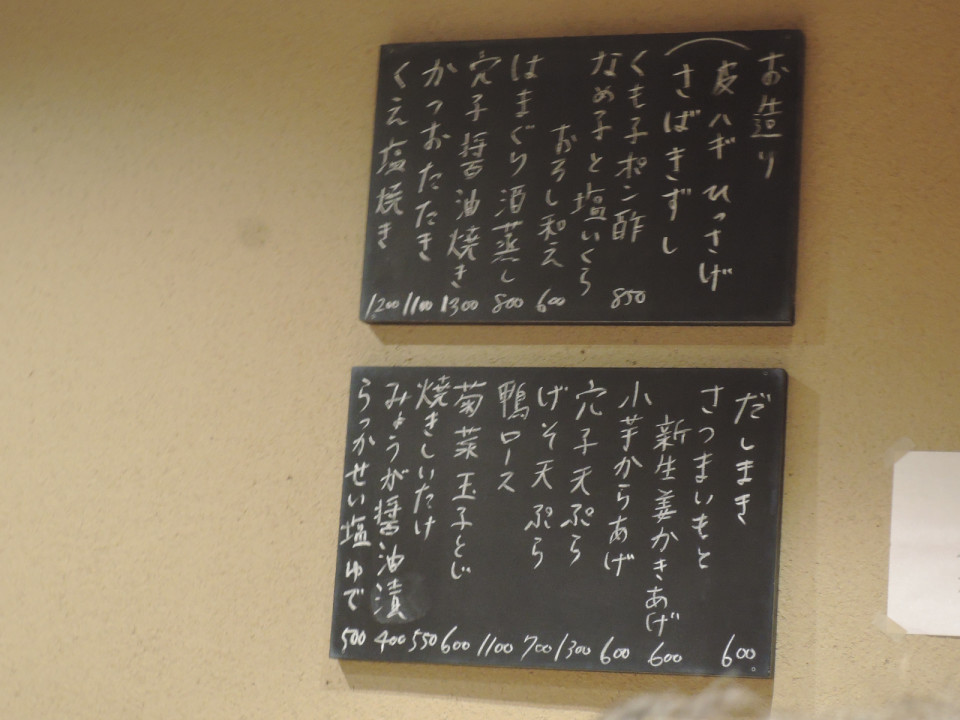 お造り
皮ハギ ひっさげ
さばきずし
くも子ポン酢 850
なめ子と塩いくら
おろし和え 600
はまぐり酒蒸し 800
穴子醤油焼き 1300
かつおたたき 1100
くえ塩焼き 1200
だしまき 600
さつまいもと
新生姜かきあげ 600
小芋からあげ 600
穴子天ぷら 1300
げそ天ぷら 700
鴨ロース 1100
菊菜玉子とじ 600
焼きしいたけ 550
みょうが醤油漬 400
らっかせい塩ゆで 500